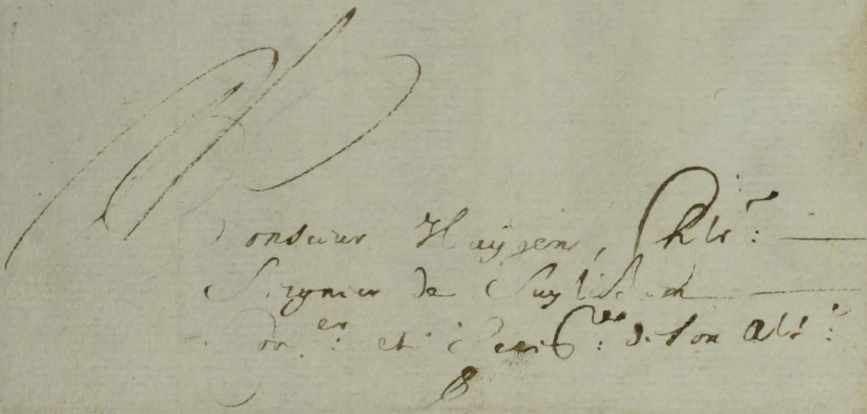 Monsieur Huygens, Chlr:
Seigneur de Suylichem
Coner: et Secrre: de son Alt: